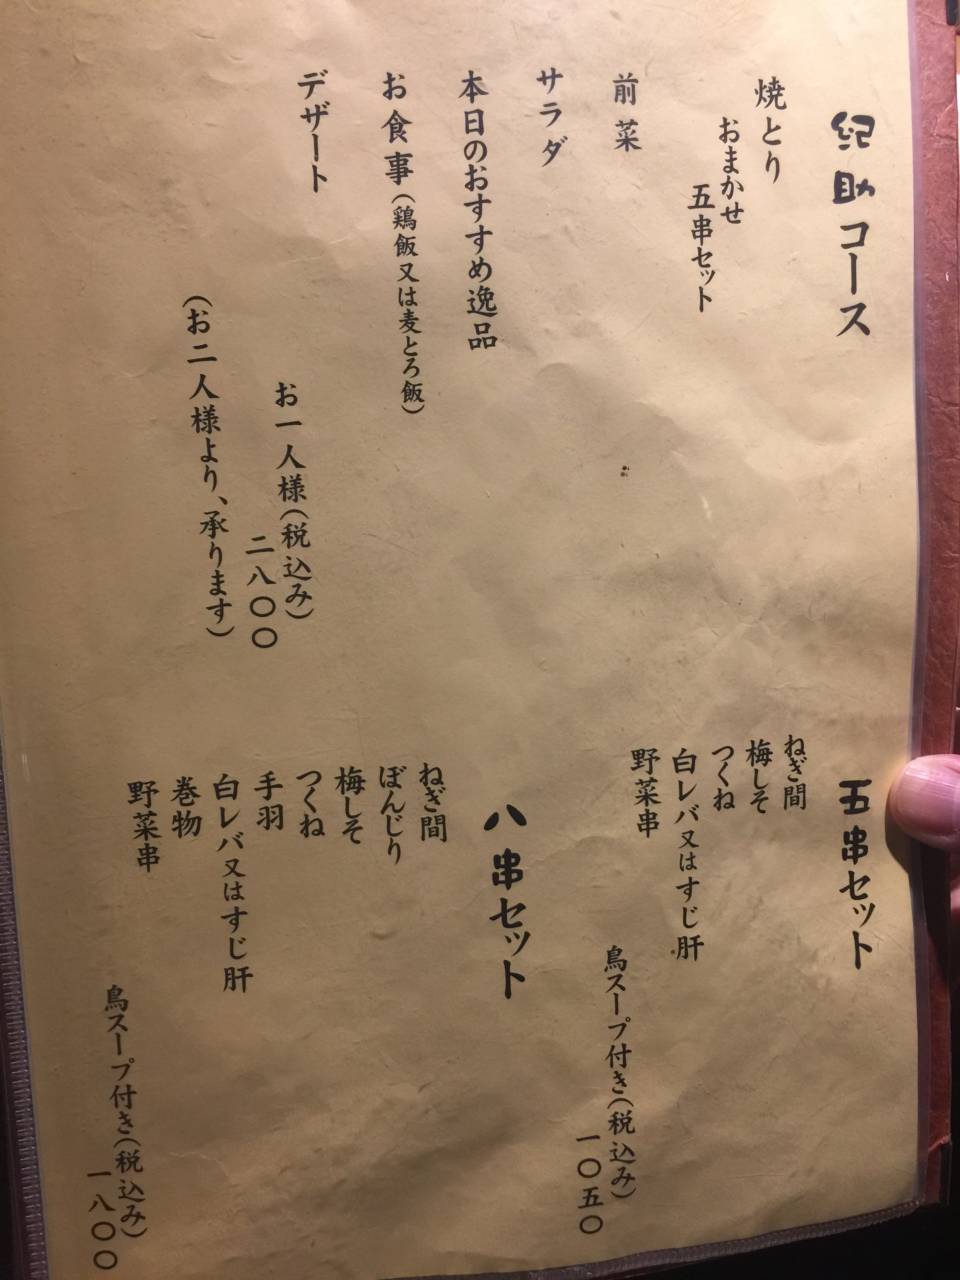 紀助コース
焼とり
おまかせ
五串セット
前菜
サラダ
本日のおすすめ逸品
お食事(鶏飯又は麦とろ飯)
デザート
お一人様(税込み)
二八〇〇
(お二人様より、承ります)
五串セット
ねぎ間
梅しそ
つくね
白レバ又はすじ肝
野菜串
鳥スープ付き(税込み)
一〇五〇
八串セット
ねぎ間
ぼんじり
梅しそ
つくね
手羽
白レバ又はすじ肝
巻物
野菜串
鳥スープ付き(税込み)
一八〇〇